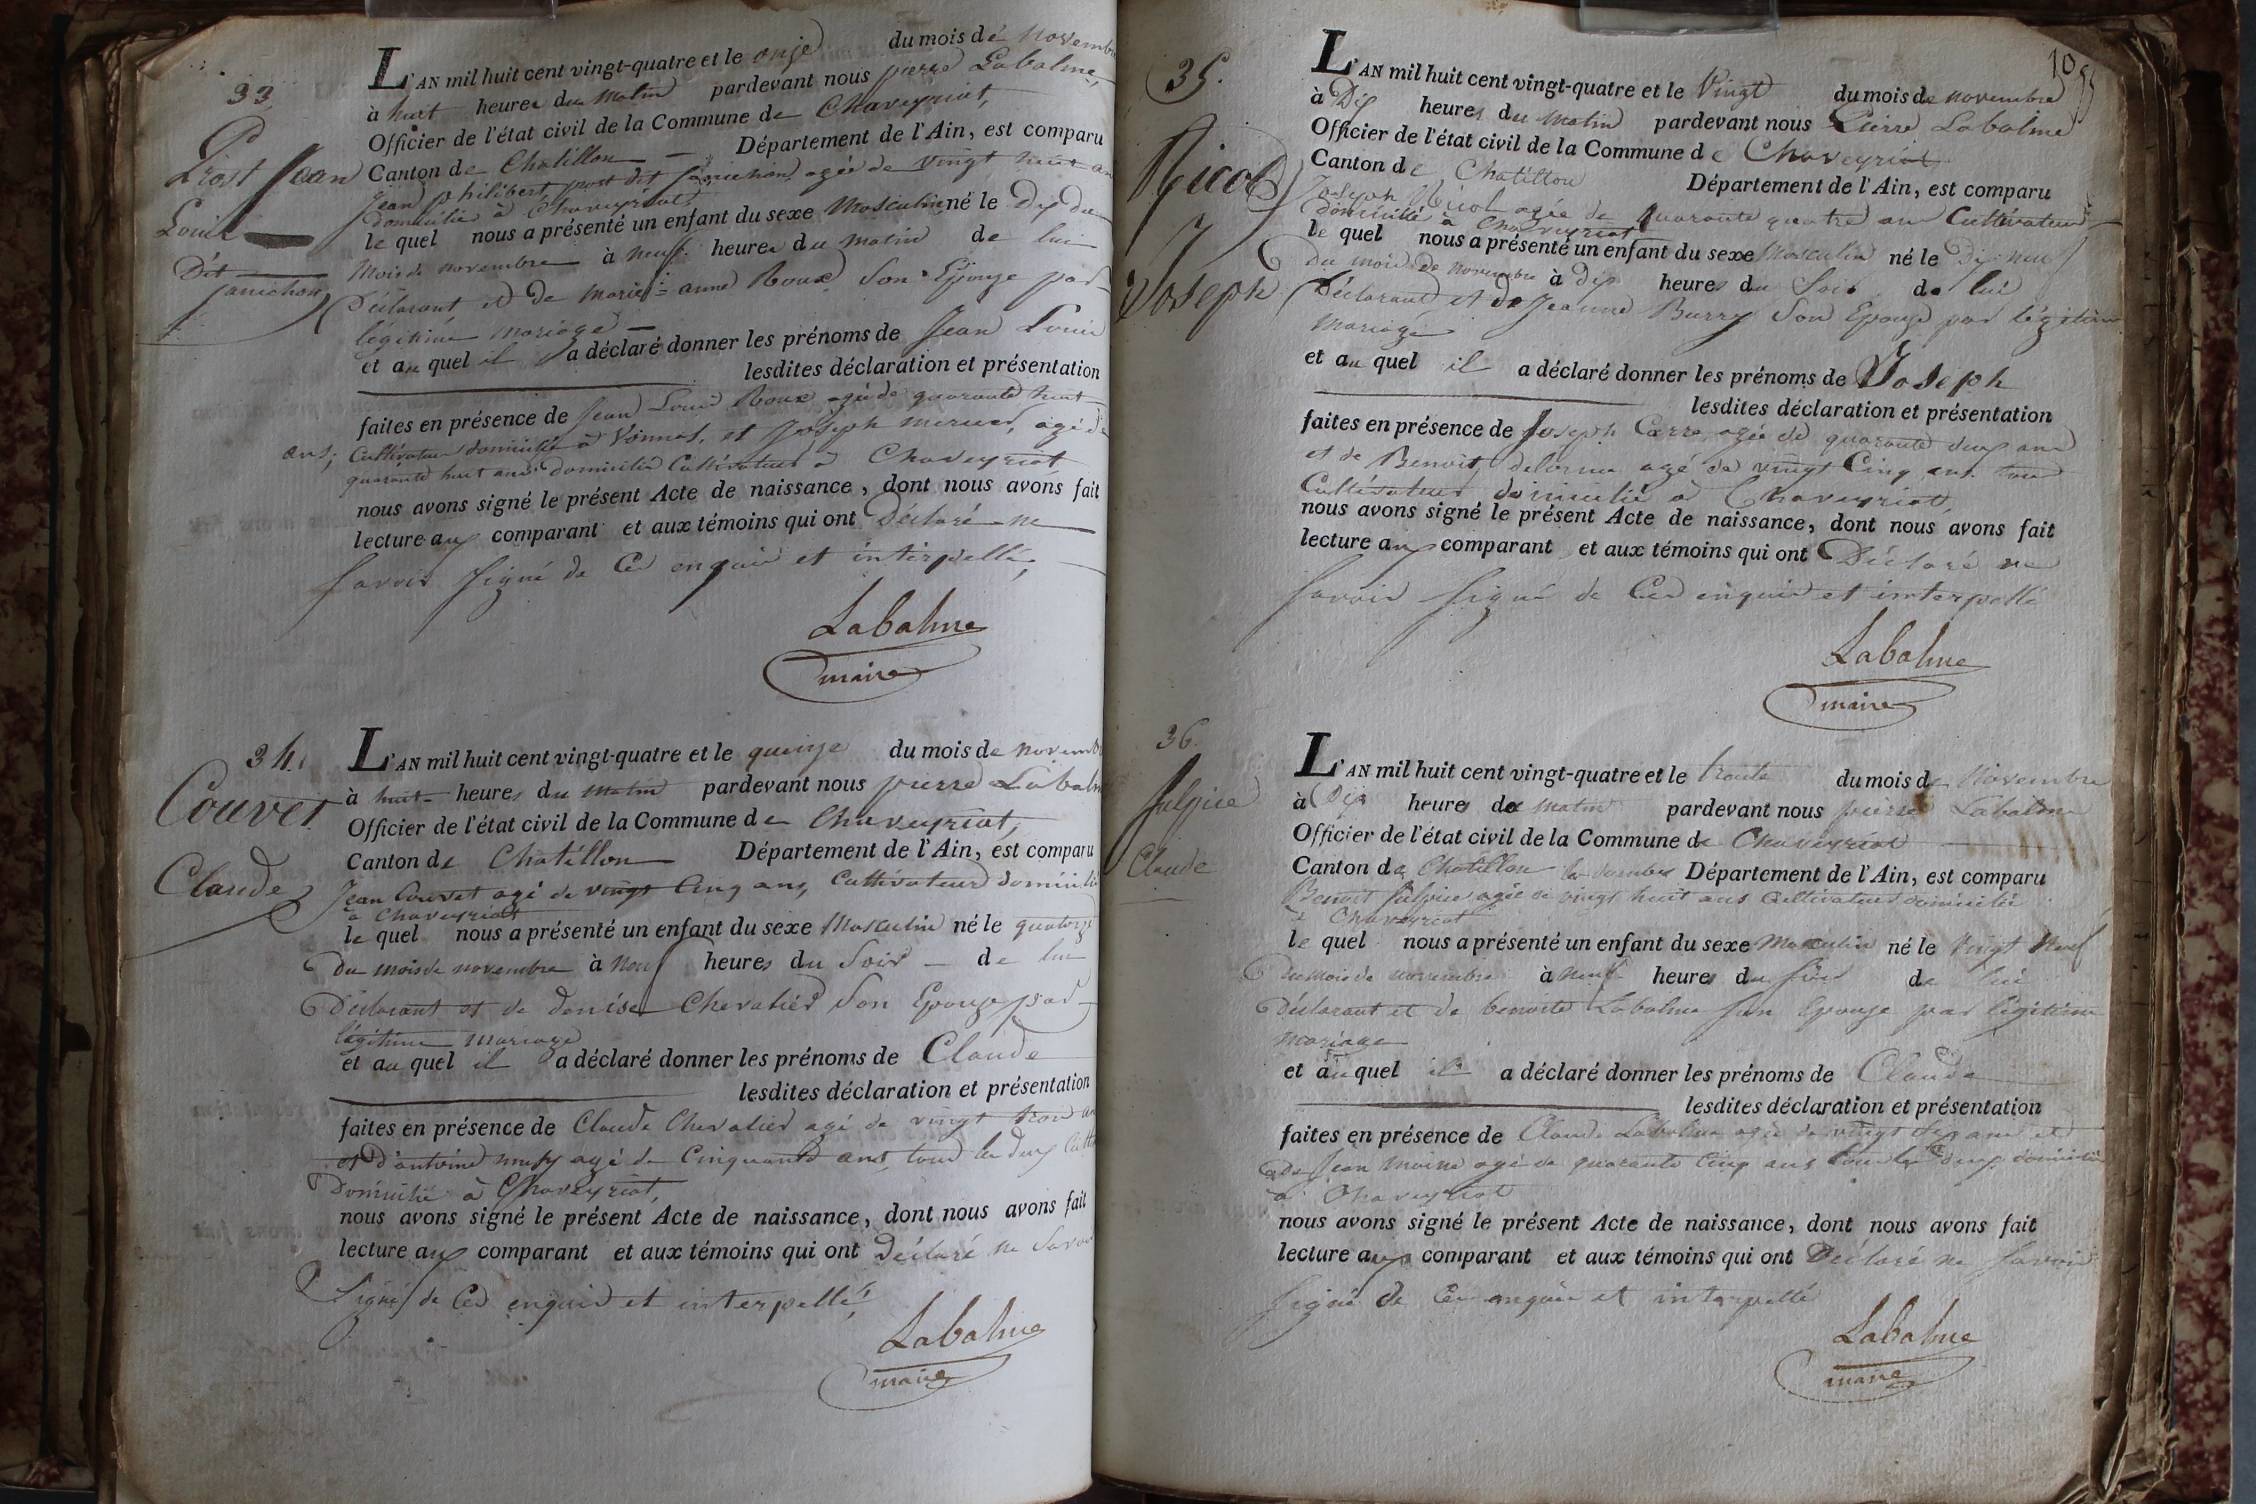 33
Prost Jean
Louis
Dit
janichon
L'AN mil huit cent vingt-quatre et le onze du mois de novembre
à huit heures du matin pardevant nous pierre Labalme,
Officier de l'état civil de la Commune de Chaveyriat,
Canton de Chatillon — Département de l'Ain, est comparu
Jean philibert prost dit janichon agée de vingt huit an
domicilié à Chaveyriat
le quel nous a présenté un enfant du sexe Masculin né le Dix du
Mois de novembre à neuf heures du matin de lui
Déclarant et de marie anne Roux Son Epouze par
légitime mariage —
et au quel il a déclaré donner les prénoms de Jean Louis
lesdites déclaration et présentation
faites en présence de Jean Louis Roux agé de quarante huit
ans, Cultivateur domicilié à Vonnas, et Joseph agé de
quarante huit ans domicilié Cultivateur à Chaveyriat
nous avons signé le présent Acte de naissance, dont nous avons fait
lecture aux comparant et aux témoins qui ont Déclaré ne
Savoir Signé de Ce enquis et interpellé,
Labalme
maire
34.
Couvet
Claude
L'AN mil huit cent vingt-quatre et le quinze du mois de novembre
à huit heures du matin pardevant nous pierre Labalm
Officier de l'état civil de la Commune de Chaveyriat,
Canton de Chatillon Département de l'Ain, est comparu
Jean Couvet agé de vingt Cinq ans, Cultivateur domicilié
à Chaveyriat
le quel nous a présenté un enfant du sexe Masculin né le quatorze
Du mois de novembre à neuf heures du Soir — de lui
Déclarant et de denise Chevalier Son Epouze par
légitime mariage
et au quel il a déclaré donner les prénoms de Claude
lesdites déclaration et présentation
faites en présence de Claude Chevalier agé de vingt an
et D'antoine agé de Cinquante ans, tous les deux Cult
Domicilié à Chaveyriat,
nous avons signé le présent Acte de naissance, dont nous avons fait
lecture aux comparant et aux témoins qui ont Déclaré ne Savoir
Signé de Ce enquis et interpellé,
Labalme
maire
10
35.
Nicol
Joseph
L'AN mil huit cent vingt-quatre et le Vingt du mois de novembre
à Dix heures du Matin pardevant nous Pierre Labalme
Officier de l'état civil de la Commune de Chaveyriat
Canton de Chatillon Département de l'Ain, est comparu
Joseph Nicol agée de quarante quatre an Cultivateur
domicilié à Chaveyriat
le quel nous a présenté un enfant du sexe Masculin né le Dix neuf
Du mois de novembre à Dix heures du Soir de lui
Déclarant et de Jeanne Burry Son Epouze par légitime
Mariage
et au quel il a déclaré donner les prénoms de Joseph
lesdites déclaration et présentation
faites en présence de Joseph Carre agée de quarante deux ans
et de Benoit delorme agé de vingt Cinq ans tous
Cultivateur domicilié à Chaveyriat,
nous avons signé le présent Acte de naissance, dont nous avons fait
lecture aux comparant et aux témoins qui ont Déclaré ne
Savoir Signé de Ce enquis et interpellé
Labalme
maire
36.
Sulpice
Claude
L'AN mil huit cent vingt-quatre et le trente du mois de Novembre
à Dix heures du matin pardevant nous pierre Labalme
Officier de l'état civil de la Commune de Chaveyriat
Canton de Chatillon les dombes Département de l'Ain, est comparu
Benoit Sulpice agée de vingt huit ans Cultivateur domicilié
à Chaveyriat
le quel nous a présenté un enfant du sexe Masculin né le Vingt Neuf
Du mois de novembre à neuf heures du Soir de lui
Déclarant et de benoite Labalme Son Epouze par légitime
mariage
et au quel il a déclaré donner les prénoms de Claude
lesdites déclaration et présentation
faites en présence de Claude Labalme agée de vingt Sept ans et
de Jean Moine agé de quarante Cinq ans tous les deux domicilié
à Chaveyriat
nous avons signé le présent Acte de naissance, dont nous avons fait
lecture aux comparant et aux témoins qui ont Déclaré ne Savoir
Signé de Ce enquis et interpellé
Labalme
maire